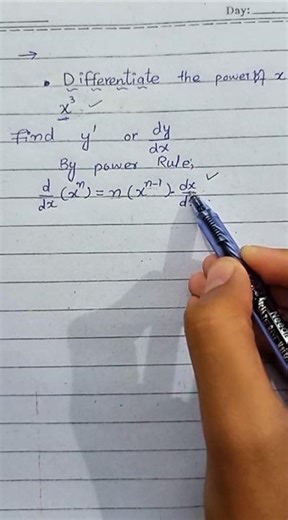 Day:
→
• Differentiate the power of x
x³ ✓
Find y' or dy/dx
By power Rule;
d/dx (xⁿ) = n (xⁿ⁻¹) · dx/dx ✓